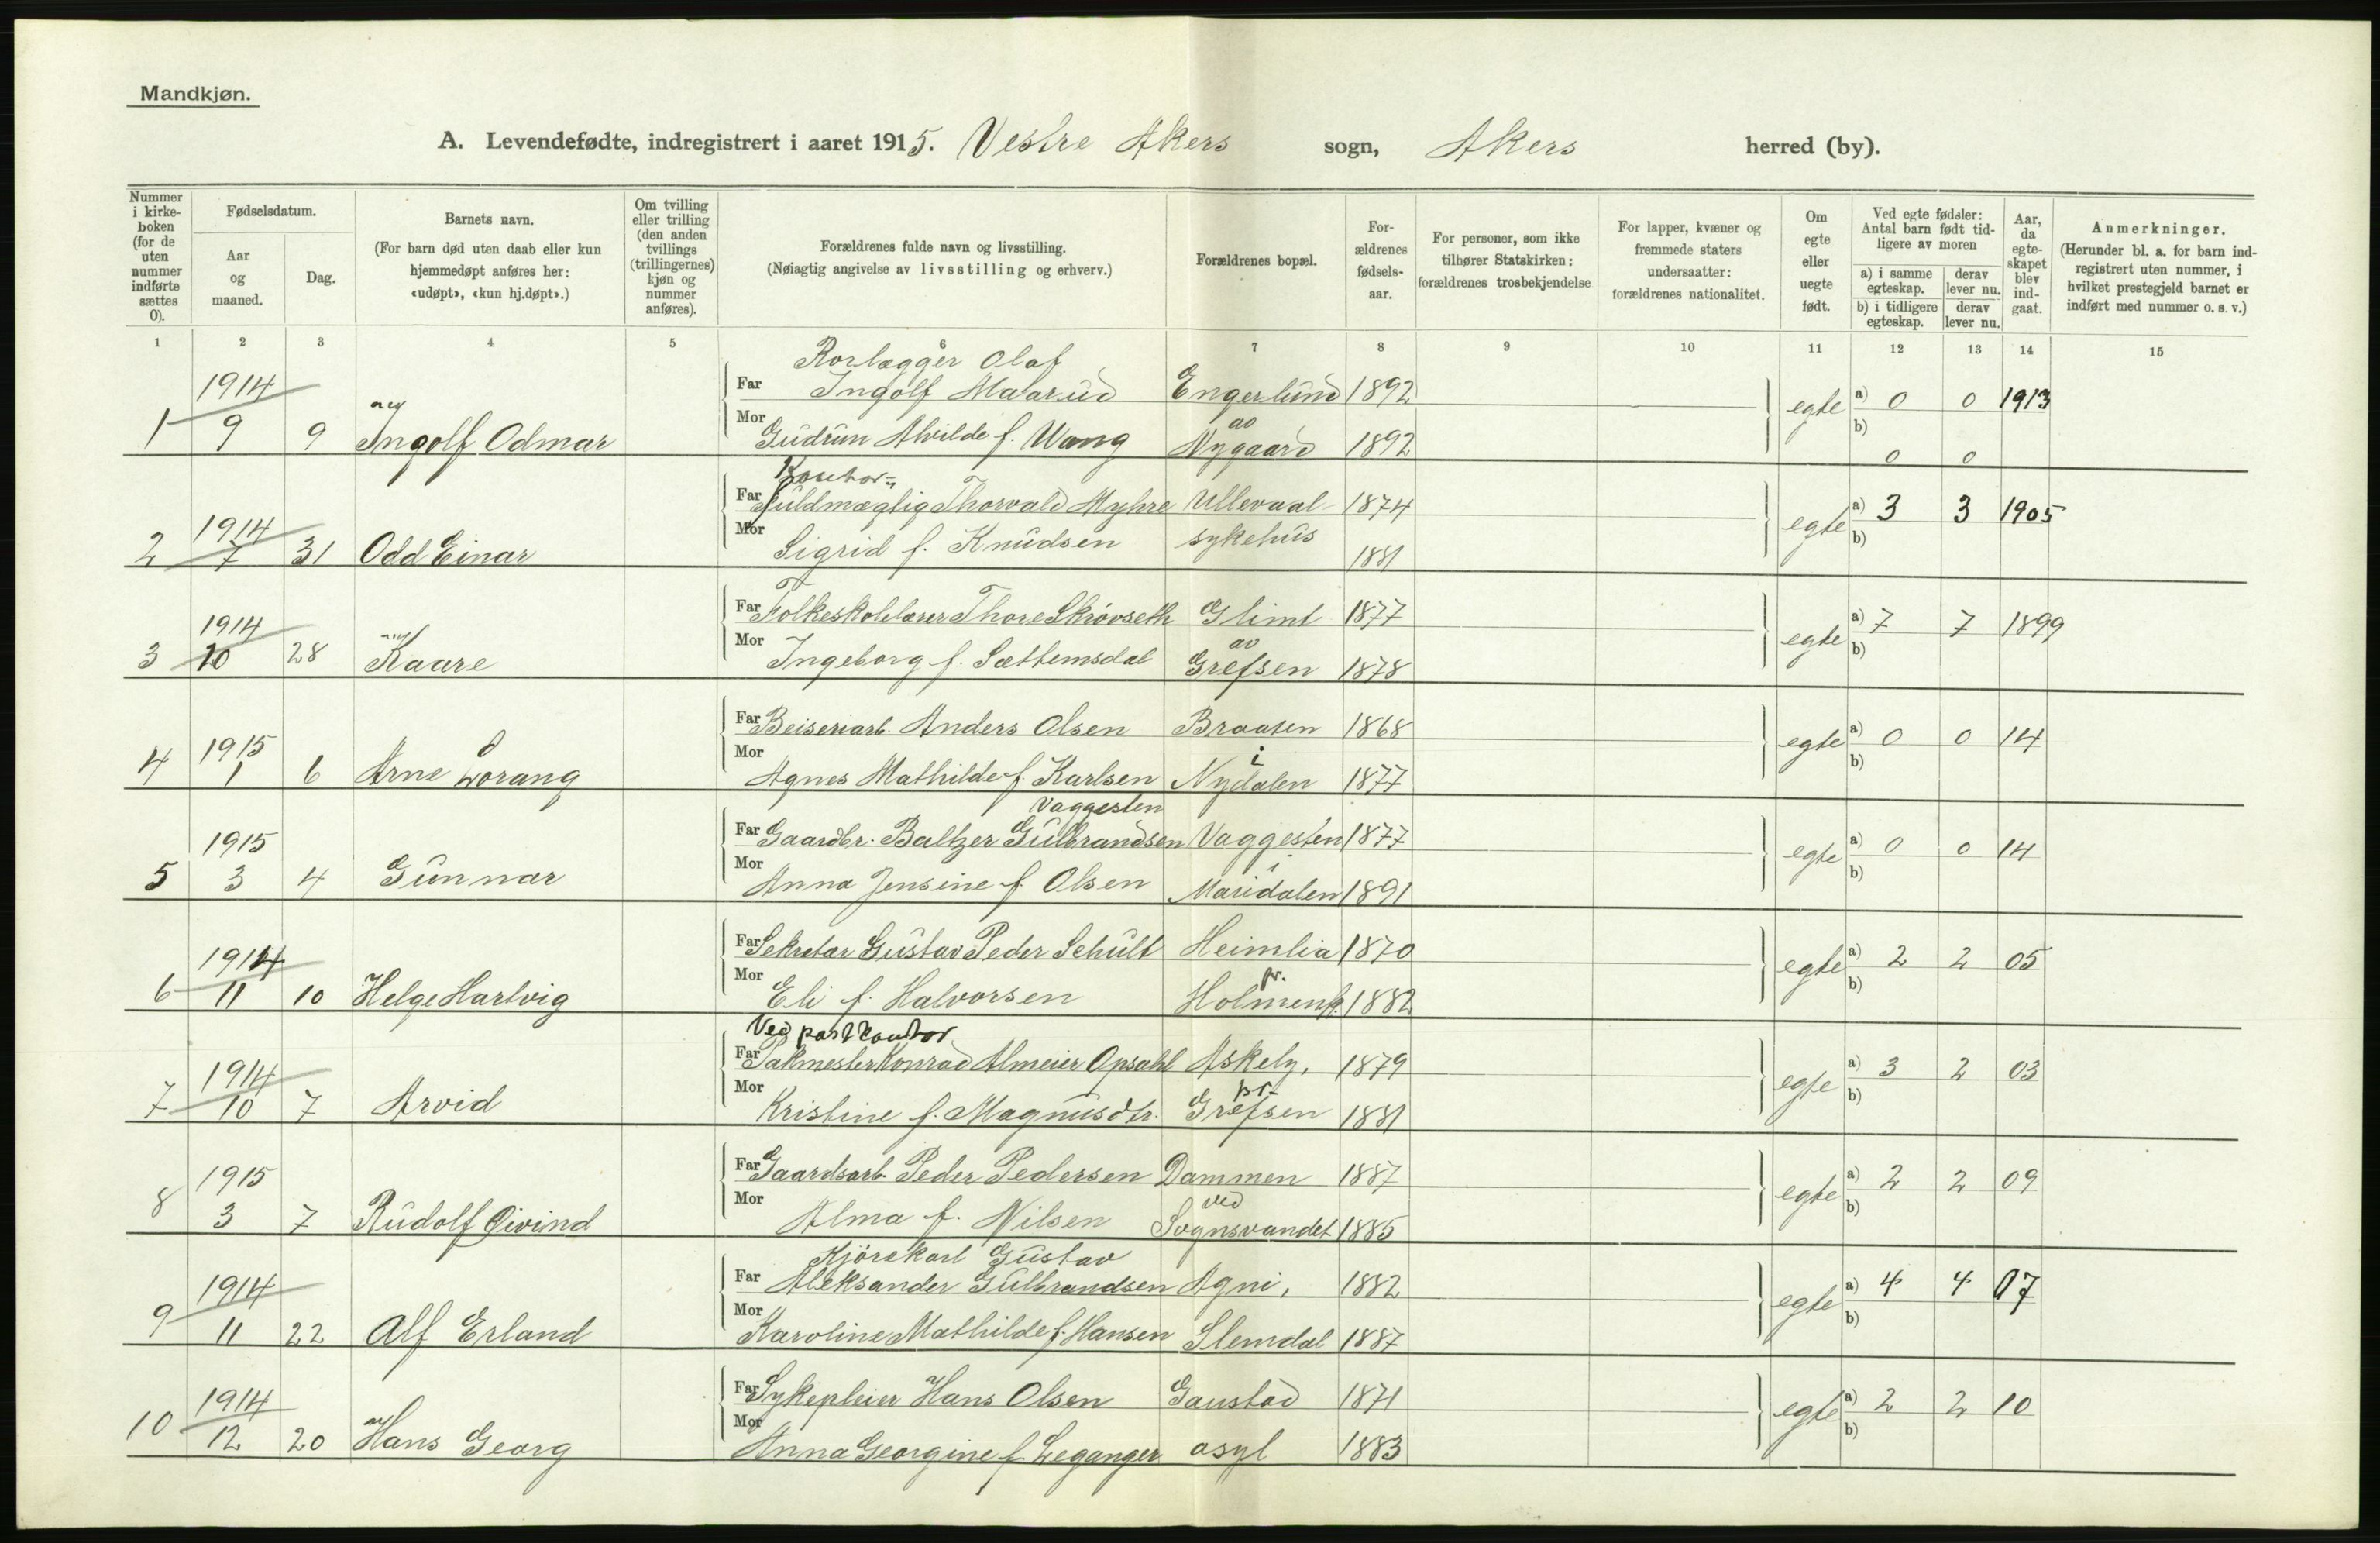 Mandkjøn.
A. Levendefødte, indregistrert i aaret 1915. Vestre Akers sogn, Akers herred (by).
Nummer i kirke- boken (for de uten nummer indførte sættes 0).
Fødselsdatum.
Aar og maaned.
Dag.
Barnets navn.
(For barn død uten daab eller kun hjemmedøpt anføres her: «udøpt», «kun hj.døpt».)
Om tvilling eller trilling (den anden tvillings (trillingernes) kjøn og nummer anføres).
Forældrenes fulde navn og livsstilling.
(Nøiagtig angivelse av livsstilling og erhverv.)
Forældrenes bopæl.
For- ældrenes fødsels- aar.
For personer, som ikke tilhører Statskirken: forældrenes trosbekjendelse
For lapper, kvæner og fremmede staters undersaatter: forældrenes nationalitet.
Om egte eller uegte født.
Ved egte fødsler: Antal barn født tid- ligere av moren
a) i samme egteskap. derav lever nu.
b) i tidligere egteskap. derav lever nu.
Aar, da egte- skapet blev ind- gaat.
Anmerkninger.
(Herunder bl. a. for barn ind- registrert uten nummer, i hvilket prestegjeld barnet er indført med nummer o. s. v.)
1 2 3 4 5 6 7 8 9 10 11 12 13 14 15
Rorlægger Olaf
1914 Far Ingolf Maarud Engerlund 1892 egte a) 0 0 1913
1 9 9 Ingolf Odmar Mor Gudrun Alvilde f. Wang av Nygaard 1892 b)
0 0
Kontor-
1914 Far Fuldmægtig Thorvald Myhre Ullevaal 1874 egte a) 3 3 1905
2 7 31 Odd Einar Mor Sigrid f. Knudsen sykehus 1881 b)
1914 Far Folkeskolelærer Thore Skrövseth Glimt 1877 egte a) 7 7 1899
3 10 28 Kaare Mor Ingeborg f. Sættemsdal av Grefsen 1878 b)
1915 Far Beiseriarb. Anders Olsen Braaten 1868 egte a) 0 0 14
4 1 6 Arne Lorang Mor Agnes Mathilde f. Karlsen i Nydalen 1877 b)
Vaggesten
1915 Far Gaardbr. Baltzer Gulbrandsen Vaggesten 1877 egte a) 0 0 14
5 3 4 Gunnar Mor Anna Jensine f. Olsen i Maridalen 1891 b)
1914 Far Sekretær Gustav Peder Schult Heimlia 1870 egte a) 2 2 05
6 11 10 Helge Hartvig Mor Eli f. Halvorsen pr. Holmenk. 1882 b)
Ved postkontor
1914 Far Pakmester Konrad Almeier Opsahl Askely, 1879 egte a) 3 2 03
7 10 7 Arvid Mor Kristine f. Magnusdtr. pr. Grefsen 1881 b)
1915 Far Gaardsarb. Peder Pedersen Dammen 1887 egte a) 2 2 09
8 3 7 Rudolf Øivind Mor Alma f. Nilsen ved Sognsvandet 1885 b)
Kjörekarl Gustav
1914 Far Aleksander Gulbrandsen Agni, 1882 egte a) 4 4 07
9 11 22 Alf Erland Mor Karoline Mathilde f. Hansen Slemdal 1887 b)
1914 Far Sykepleier Hans Olsen Gaustad 1871 egte a) 2 2 10
10 12 20 Hans Georg Mor Anna Georgine f. Leganger asyl 1883 b)